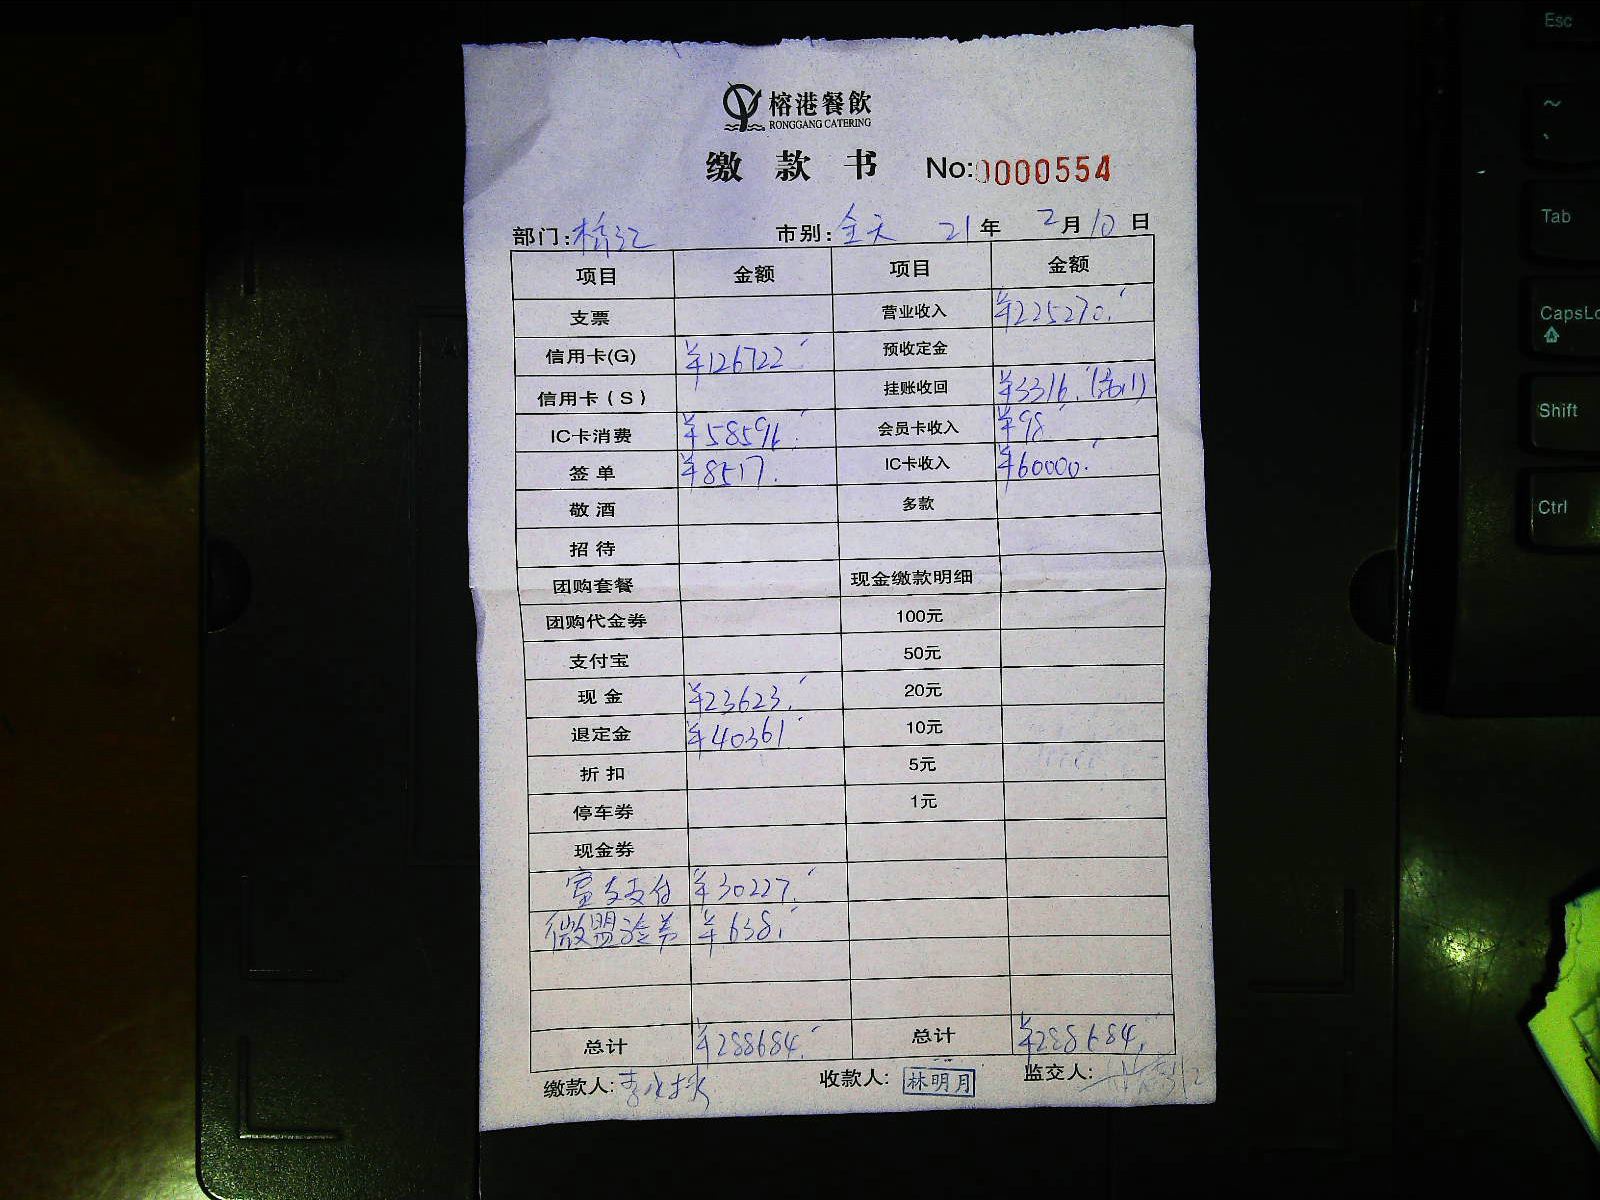 榕港餐飲
RONGGANG CATERING
缴款书 No:0000554
部门: 市别:全天 21年 2月10日
项目 金额 项目 金额
支票 营业收入 ¥225270.
信用卡(G) ¥126722. 预收定金
信用卡(S) 挂账收回 ¥3316.
IC卡消费 ¥58596. 会员卡收入 ¥98
签单 ¥8517. IC卡收入 ¥60000.
敬酒 多款
招待
团购套餐 现金缴款明细
团购代金券 100元
支付宝 50元
现金 ¥23623. 20元
退定金 ¥40361 10元
折扣 5元
停车券 1元
现金券
支付 ¥30227.
微盟 券 ¥638.
总计 ¥288684. 总计 ¥288684.
缴款人:李 收款人:林明月 监交人:
Esc
~
Tab
CapsLo
Shift
Ctrl